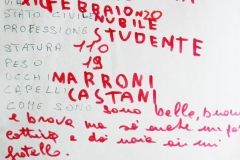 VIA FEBBRAIO N20
STATO CIVILE NUBILE
PROFESSIONE STUDENTE
STATURA 110
PESO 19
OCCHI MARRONI
CAPELLI CASTANI
COME SONO sono bella, buona
e brava ma so anche un po'
cattiva e do noia al mio
fratello.